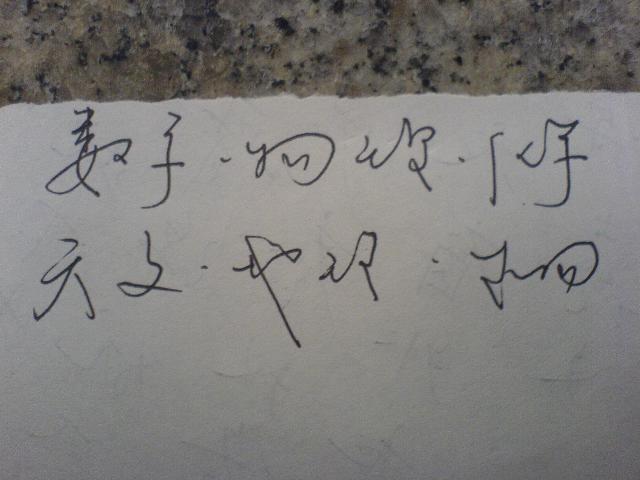 数学·物理·化学
天文·地理·生物